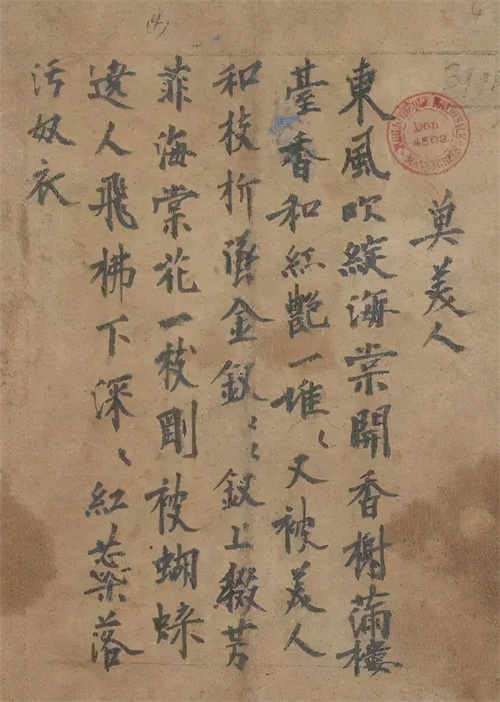 莫美人
東風吹綻海棠開香榭滿樓
臺香和紅艷一堆〻又被美人
和枝折墜金釵〻〻釵上綴芳
菲海棠花一枝剛被蝴蝶
遶人飛拂下深〻紅蘂落
污奴衣
BIBLIOTHÈQUE NATIONALE
DON
4502
MANUSCRITS
4